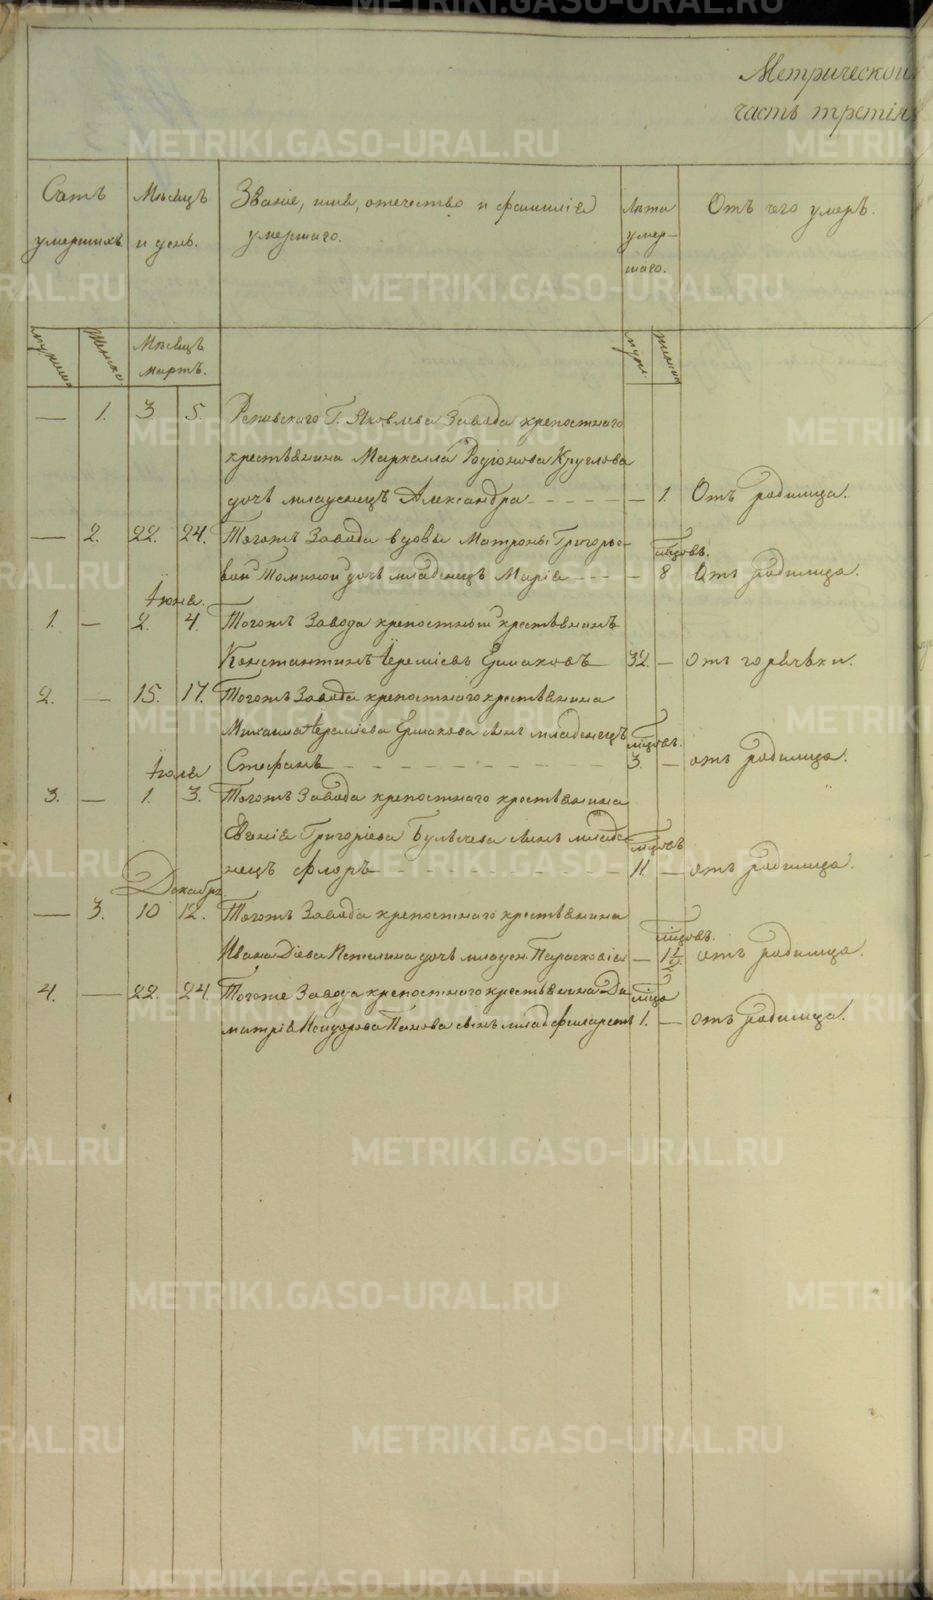 Метрической
часть третія
Счетъ умершихъ
Мѣсяцъ и день.
Званіе, имя, отечество и фамилія умершаго.
Лѣта умершаго.
Отъ чего умеръ.
Мѣсяцъ Мартъ.
— 1. 3. 5. Режевскаго Г. Яковлева Завода крепостного
крестьянина Маркелла Родіонова Круглова
дочь младенецъ Александра — 1. Отъ родимца.
— 2. 22. 24. Тогожъ Завода вдовы Матроны Григорье-
вой Томиной дочь младенецъ Марія — мцовъ. 8 Отъ родимца.
Іюня.
1. — 2. 4. Тогожъ Завода крепостный крестьянинъ
Константинъ Ереміевъ Ермаковъ 32. — отъ горячьки.
2. — 15. 17. Тогожъ Завода крепостного крестьянина
Михаила Ереміева Ермакова сынъ младенецъ
Стефанъ мцовъ. 3. — отъ родимца.
Іюля
3. — 1. 3. Тогожъ Завода крепостного крестьянина
Григоріева сынъ младе
нецъ Флоръ мцовъ 11. — отъ родимца.
Декабрь
— 3. 10 12. Тогожъ Завода крепостного крестьянина
Ивана дочь младен. Парасковія — мцовъ. 1½ отъ родимца.
4. — 22. 24. Тогоже Завода крепостного крестьянина Ди
митрія Исидорова Панова сынъ млад Филаретъ мца 1. — отъ родимца.
METRIKI.GASO-URAL.RU